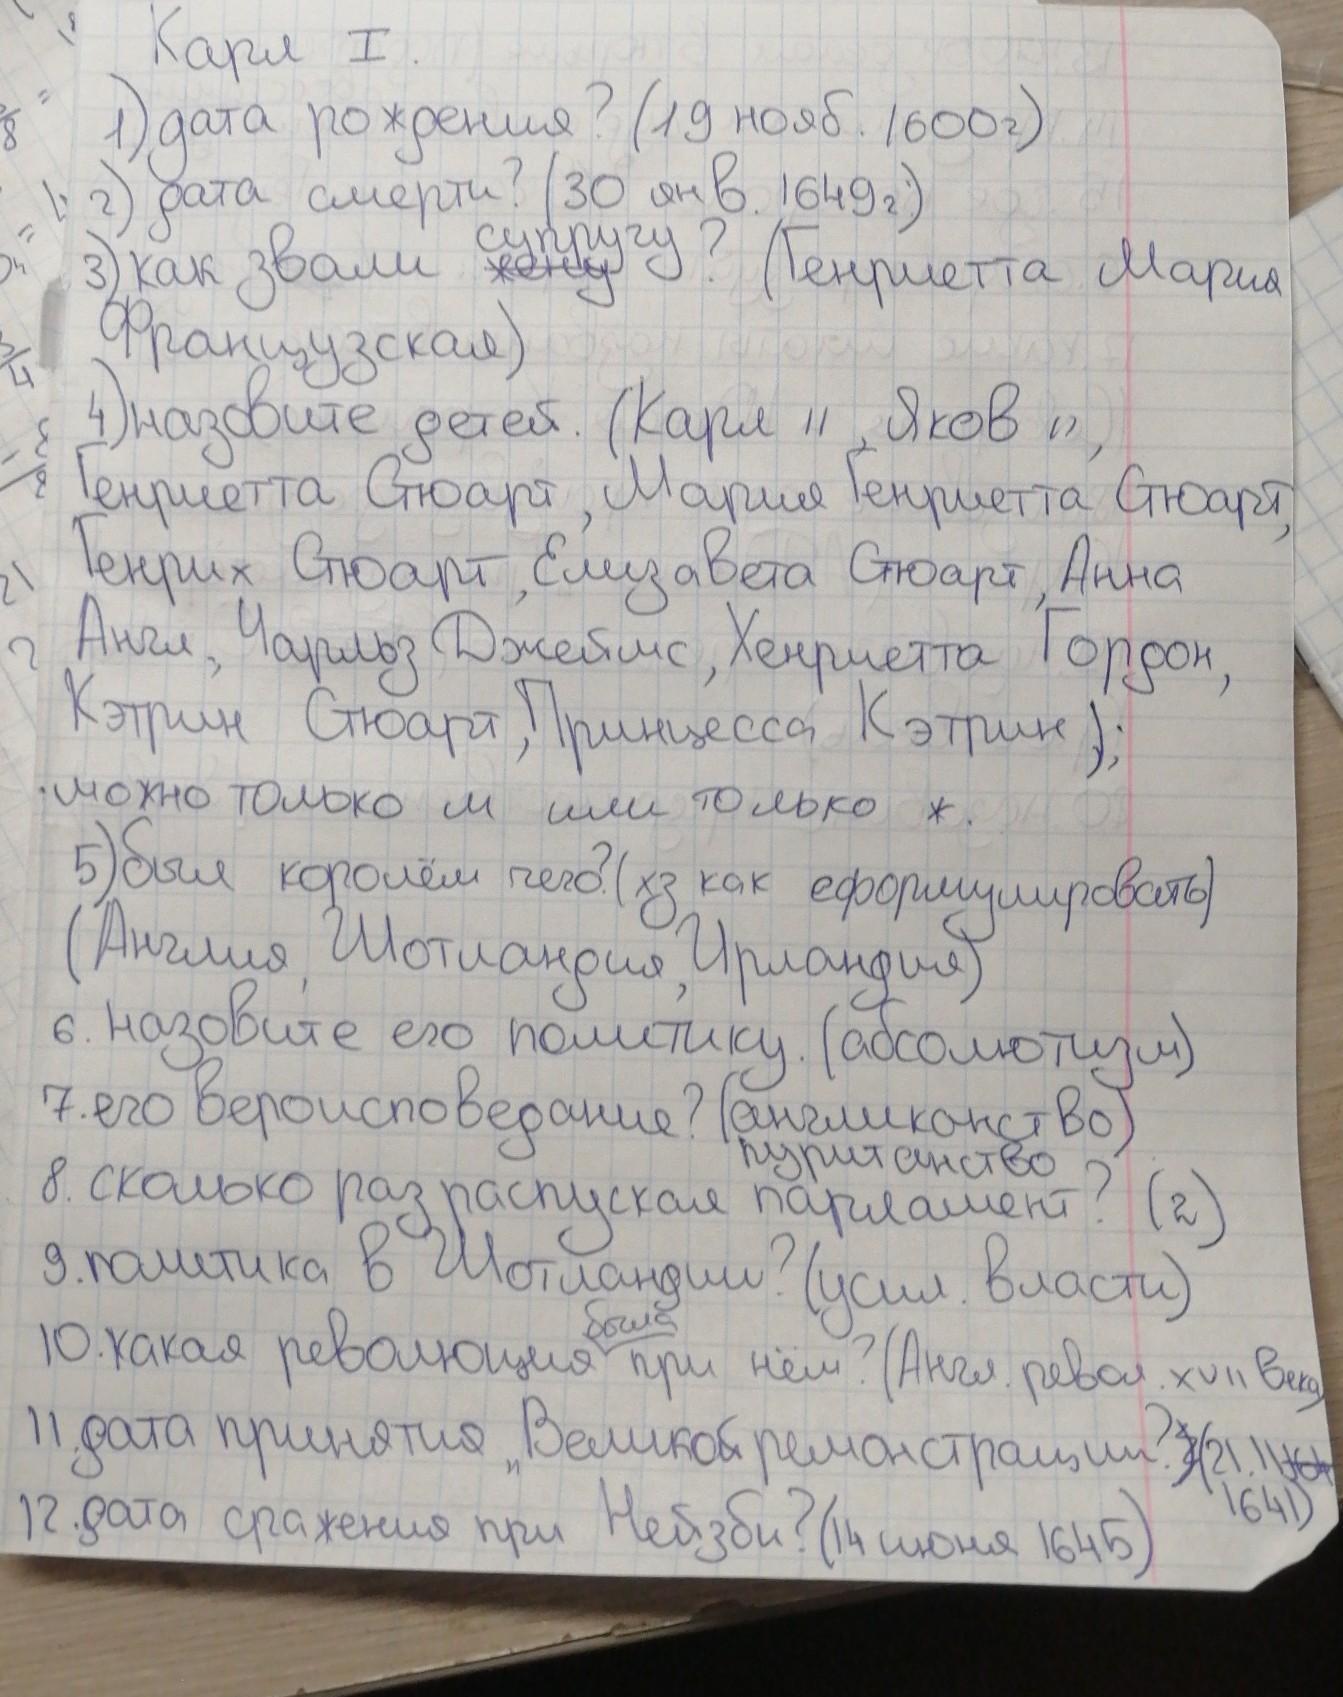 Карл I.
1) дата рождения? (19 нояб. 1600г)
2) дата смерти? (30 янв. 1649г.)
3) как звали жену супругу? (Генриетта Мария
Французская)
4) назовите детей. (Карл II, Яков II,
Генриетта Стюарт, Мария Генриетта Стюарт,
Генрих Стюарт, Елизавета Стюарт, Анна
Англ., Чарльз Джеймс, Хенриетта Гордон,
Кэтрин Стюарт, Принцесса Кэтрин);
можно только м или только ж.
5) был королём чего? (хз как сформулировать)
(Англия, Шотландия, Ирландия)
6. назовите его политику. (абсолютизм)
7. его вероисповедание? (англиканство)
пуританство
8. сколько раз распускал парламент? (2)
9. политика в Шотландии? (усил. власти)
10. какая революция была при нём? (Англ. револ. XVII века)
11. дата принятия „Великой ремонстрации? (21.11
1641)
12. дата сражения при Нейзби? (14 июня 1645)